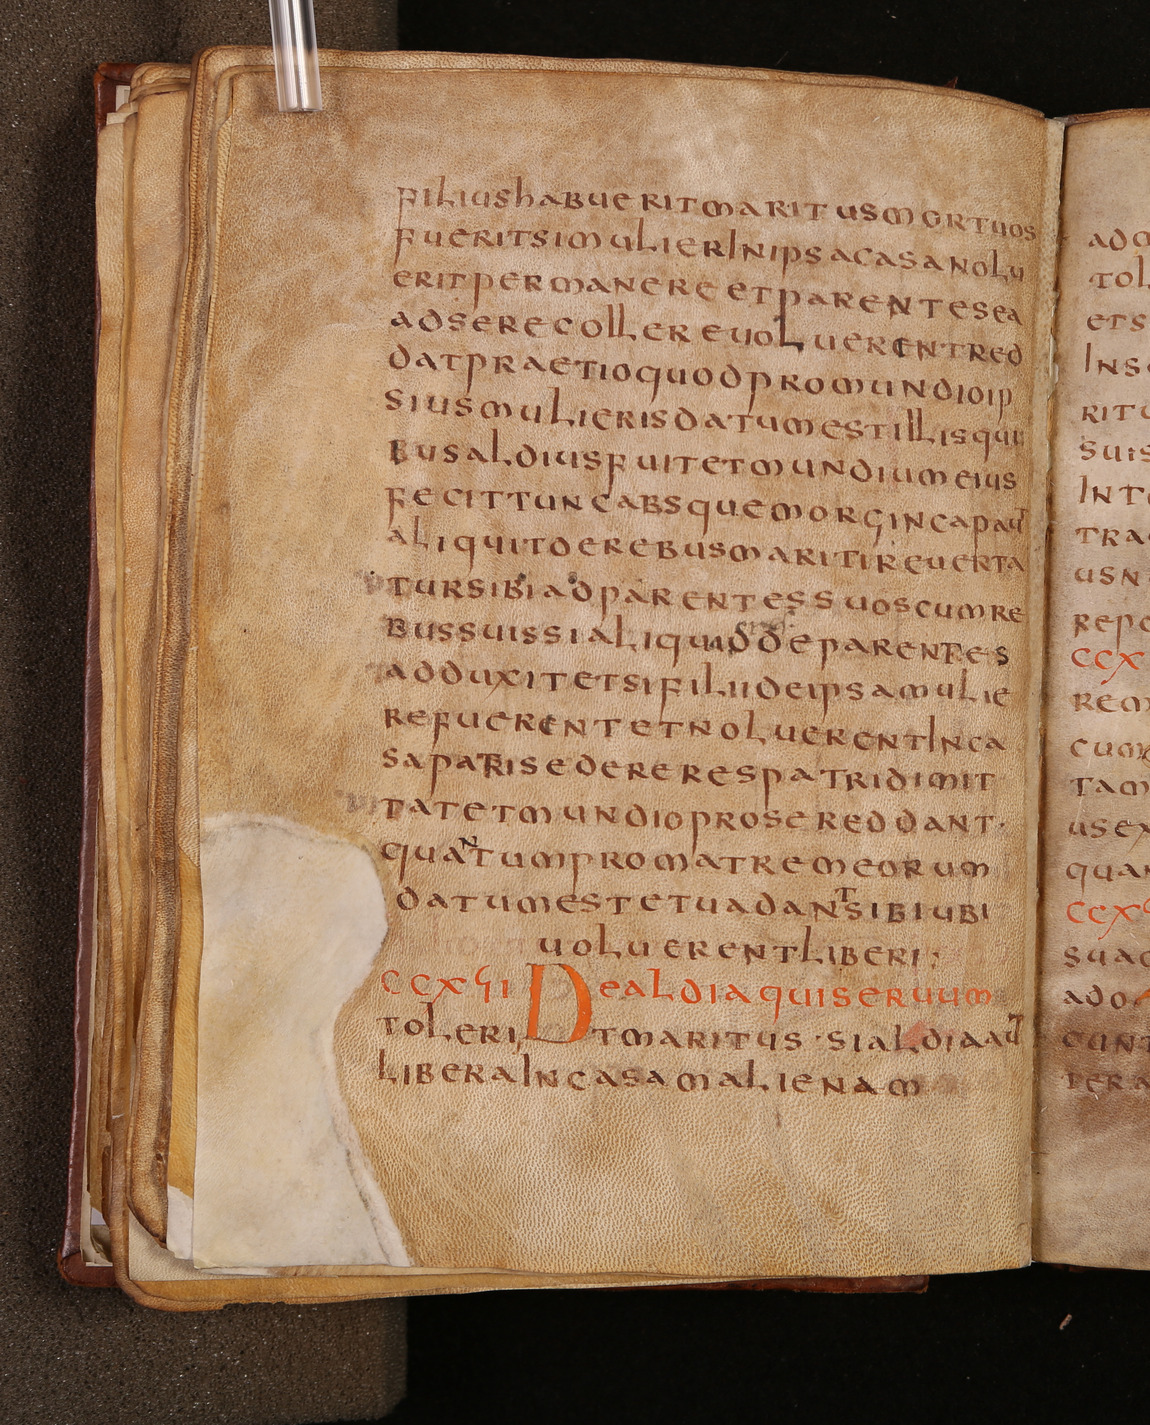 filiushabueritmaritusmortuos
fueritsimulierinipsacasanolu
eritpermanereetparentesea
adserecollereuoluerentred
datpraetioquodpromundioip
siusmulierisdatumestillisqui
busaldiusfuitetmundiumeius
fecittuncabsquemorgincapaut
aliquitderebusmaritireuerta
tursibiadparentessuoscumre
bussuissialiquiddeparentes
adduxitetsifiliideipsamulie
refuerentetnoluerentinca
sapatrisedererespatridimit
tatetmundioprosereddant·
quantumpromatremeorum
datumestetuadantsibiubi
uoluerentliberi;
ccxЧii Dealdiaquiseruum
tolerit maritus·sialdiaaut
liberaincasamalienam
ado
tol
ets
ins
ritu
suis
int
tra
usn
repo
ccx
rem
cum
tam
usex
quan
ccxЧ
suad
ado
cunt
pera